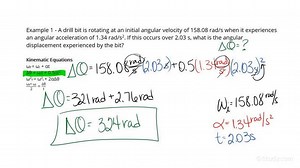 Example 1 - A drill bit is rotating at an initial angular velocity of 158.08 rad/s when it experiences
an angular acceleration of 1.34 rad/s². If this occurs over 2.03 s, what is the angular
displacement experienced by the bit?
ΔΘ = ?
Kinematic Equations
ΔΘ = 158.08 rad/s (2.03s) + 0.5(1.34 rad/s²)(2.03s)²
ΔΘ = 321 rad + 2.76 rad
ΔΘ = 324 rad
ωᵢ = 158.08 rad/s
α = 1.34 rad/s²
t: 2.03s